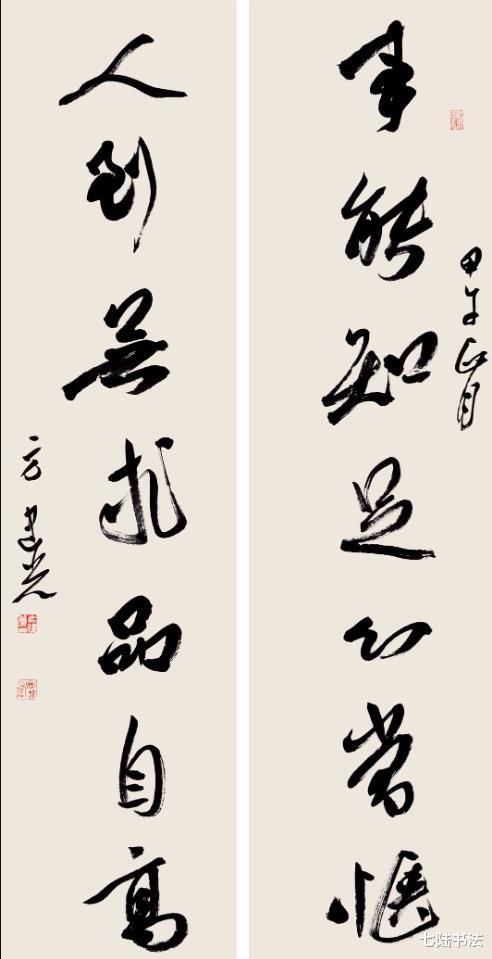 甲午正月
事能知足心常愜
人到無求品自高
方建光
七陆书法